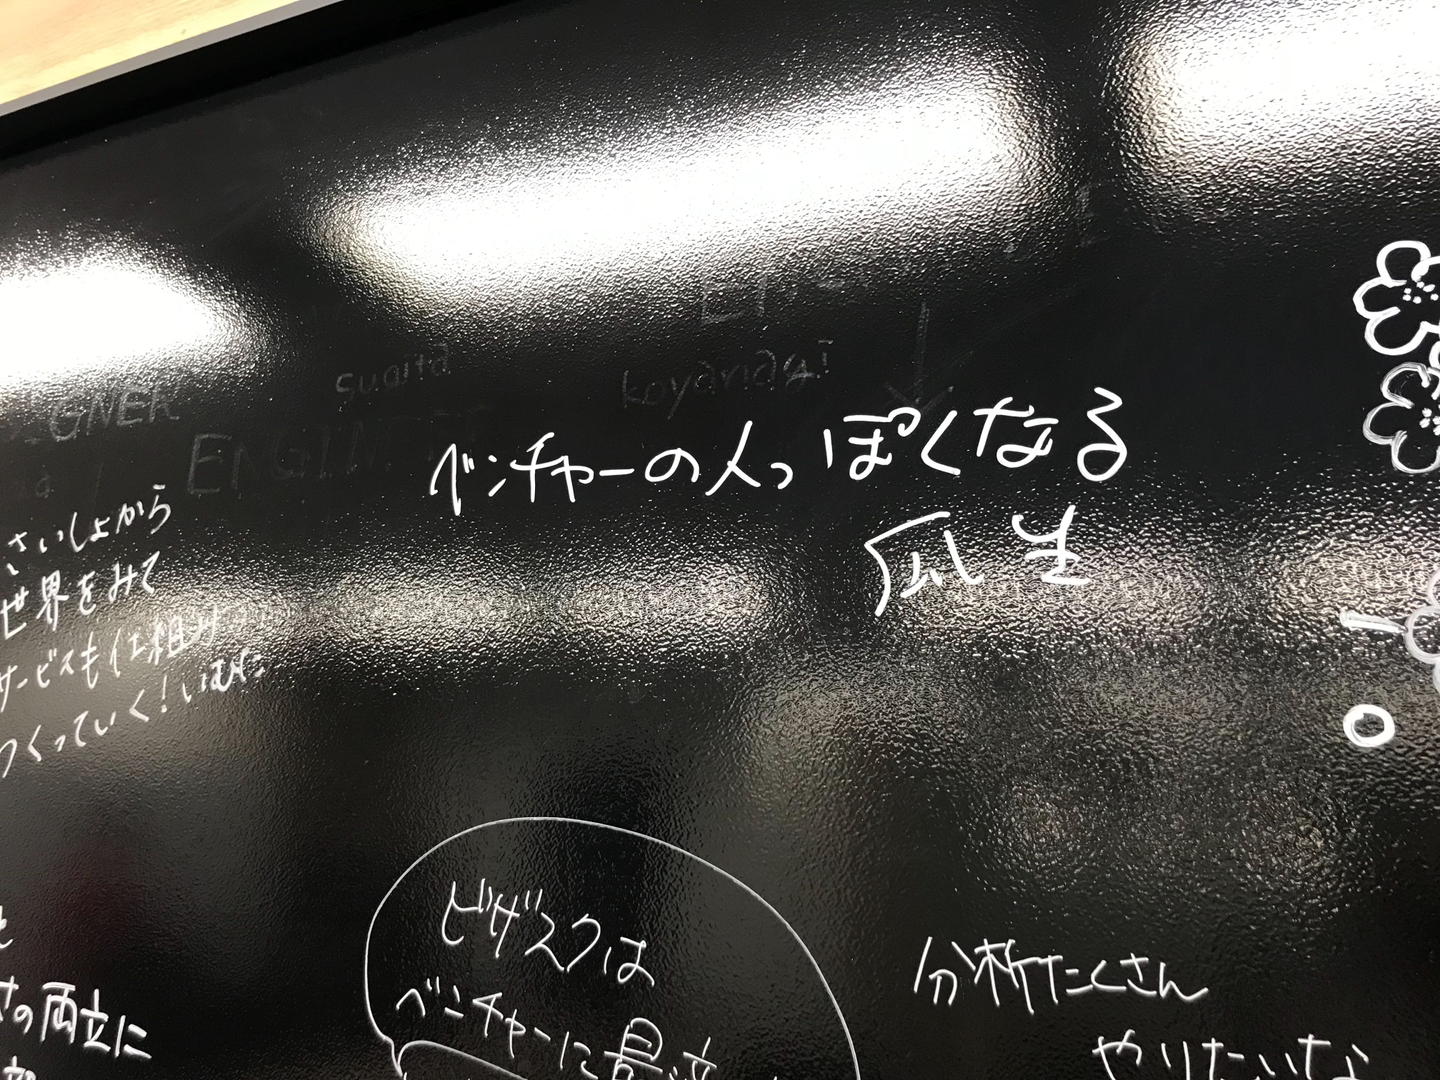 sugita
koyanagi
ベンチャーの人っぽくなる
瓜生
さいしょから
世界をみて
サービスも仕組み
つくっていく！いむた
の両立に
ビザスクは
ベンチャーに最適
分析たくさん
やりたいな